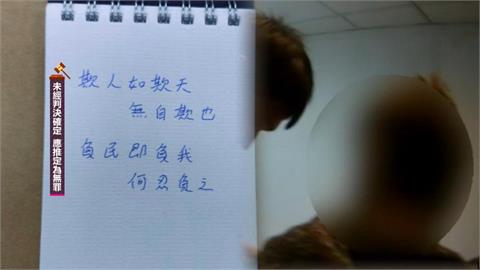 未經判決確定 應推定為無罪
欺人如欺天
無自欺也
負民即負我
何忍負之